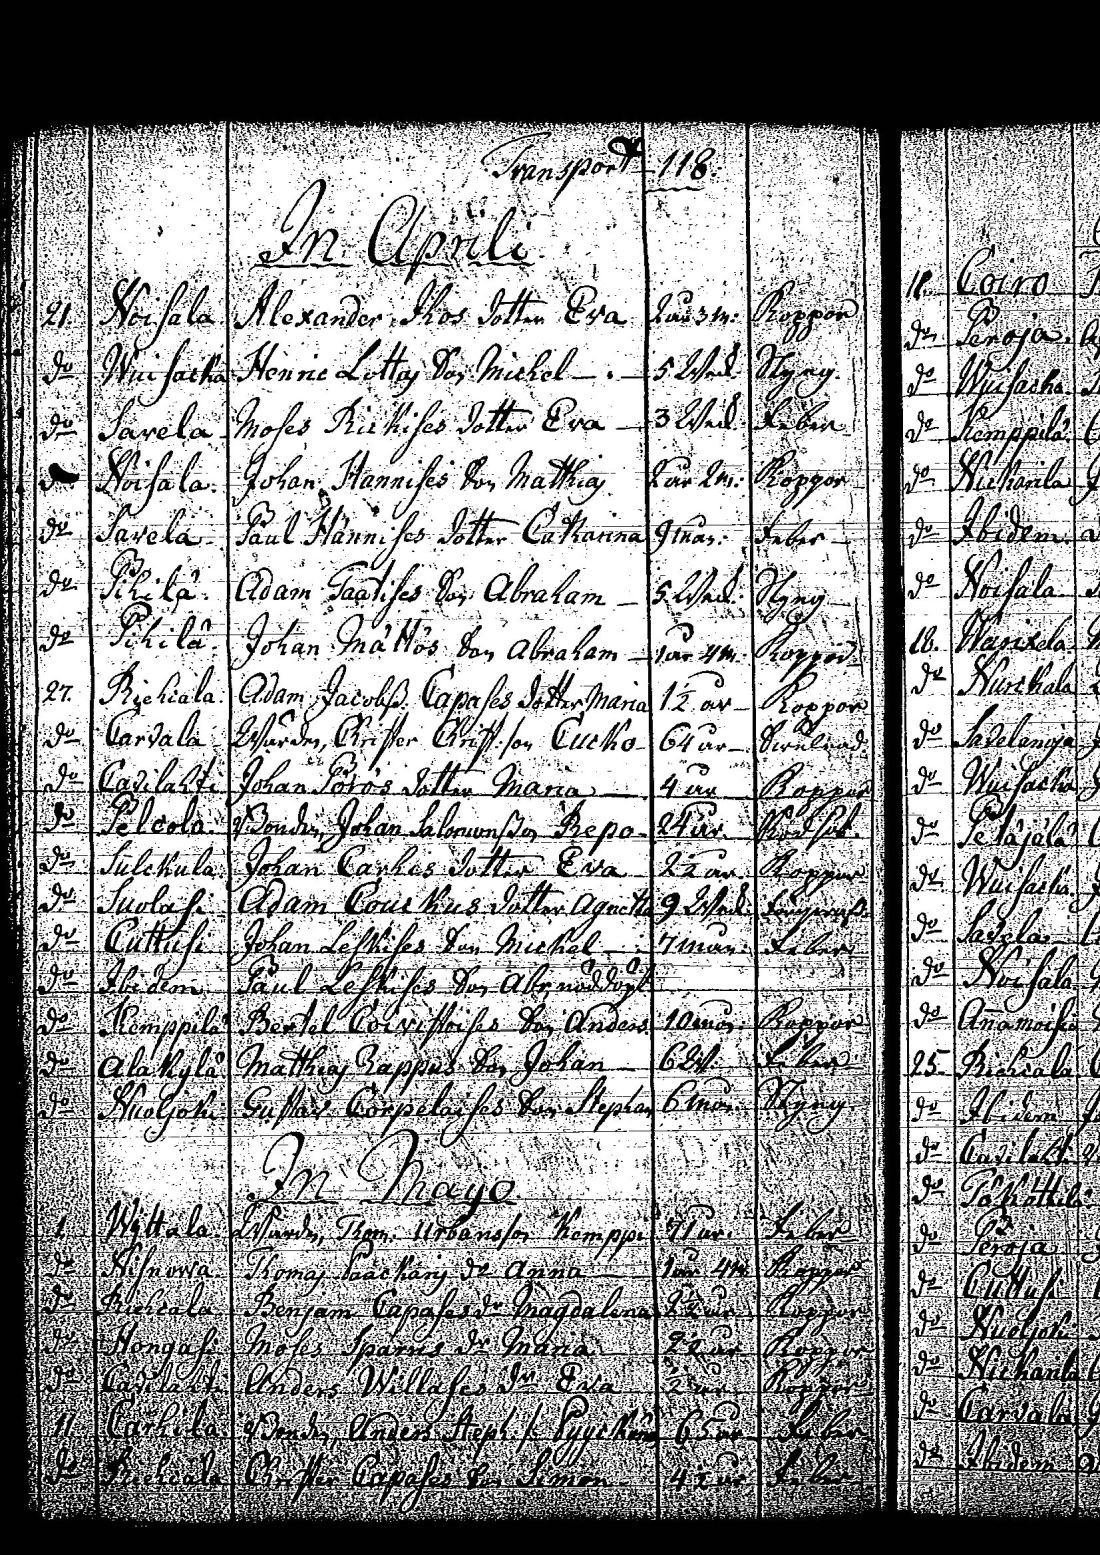 Transport 118.
In Aprili
21. Noisala Alexander Ihos dotter Eva 2 år 3 m: Koppor
do Wuisacka Henric Lottas Son Michel — 5 Wek. Slyng.
do Savela Moses Kickises dotter Eva — 3 Wek. Feber
do Noisala. Johan Hannises Son Matthias 2 år 2 m: Koppor
do Savela Paul Hännises dotter Catharina 9 mån: Feber
do Pihilä. Adam Son Abraham — 5 Wek. Slyng
do Pihilä. Johan Mättös Son Abraham — 1 år 4 m. Koppor
27. Richiala. Adam Jacobss. Capases dotter Maria 1½ år Koppor
do Carvala Christer Crist:son Cucko 64 år
do Cavilahti Johan Pörös dotter Maria 4 år Koppor
do Pelcola. Bonden Johan Salomonsson Repo 24 år
do Sulckula Johan Carhis dotter Eva 2½ år Koppor
do Suolasi Adam Couckus dotter Agneta 9 Wek.
do Cuttusi Johan Leskises Son Michel — 7 mån: Feber
do Ibidem Paul Leskises Son Abr. nöddöpt
do Kemppilä Bertel Coivistoises Son Anders 10 mån: Koppor
do Alakylä Matthias Rappus Son Johan — 6 W. Feber
do Nuoljoki Gustav Corpelaises Son Stephan 6 mån: Slyng
In Mayo
1. Wyttala. Thom. Urbansson Kemppi 71 år. Feber
do Nisnowa. Thomas dr Anna 1 år 4 m Koppor
do Richiala Benjam. Capases dr Magdalena 2½ år Koppor
do Hongasi Moses Sparris dr Maria 2½ år Koppor
do Cavilahti Anders Willases dr Eva Koppor
11. Carhila Bonden Anders Steph:s 65 år Feber
do Richiala Christer Capases Son Simon 4½ år Feber
11. Coiro
do Peroja.
do Wuisacka
do Kemppilä
do Nickarila
do Ibidem.
do Noisala
18. Warixela
do Nurckala
do Savelanoja
do Wuisacka
do Petäjälä
do Wuisacka
do Savela
do Noisala
do Annamoisia
25. Richiala
do Ibidem
do Cavilahti
do Päkättilä
do Peroja
do Cuttusi
do Nuoljoki
do Nickarila
do Carvala
do Ibidem